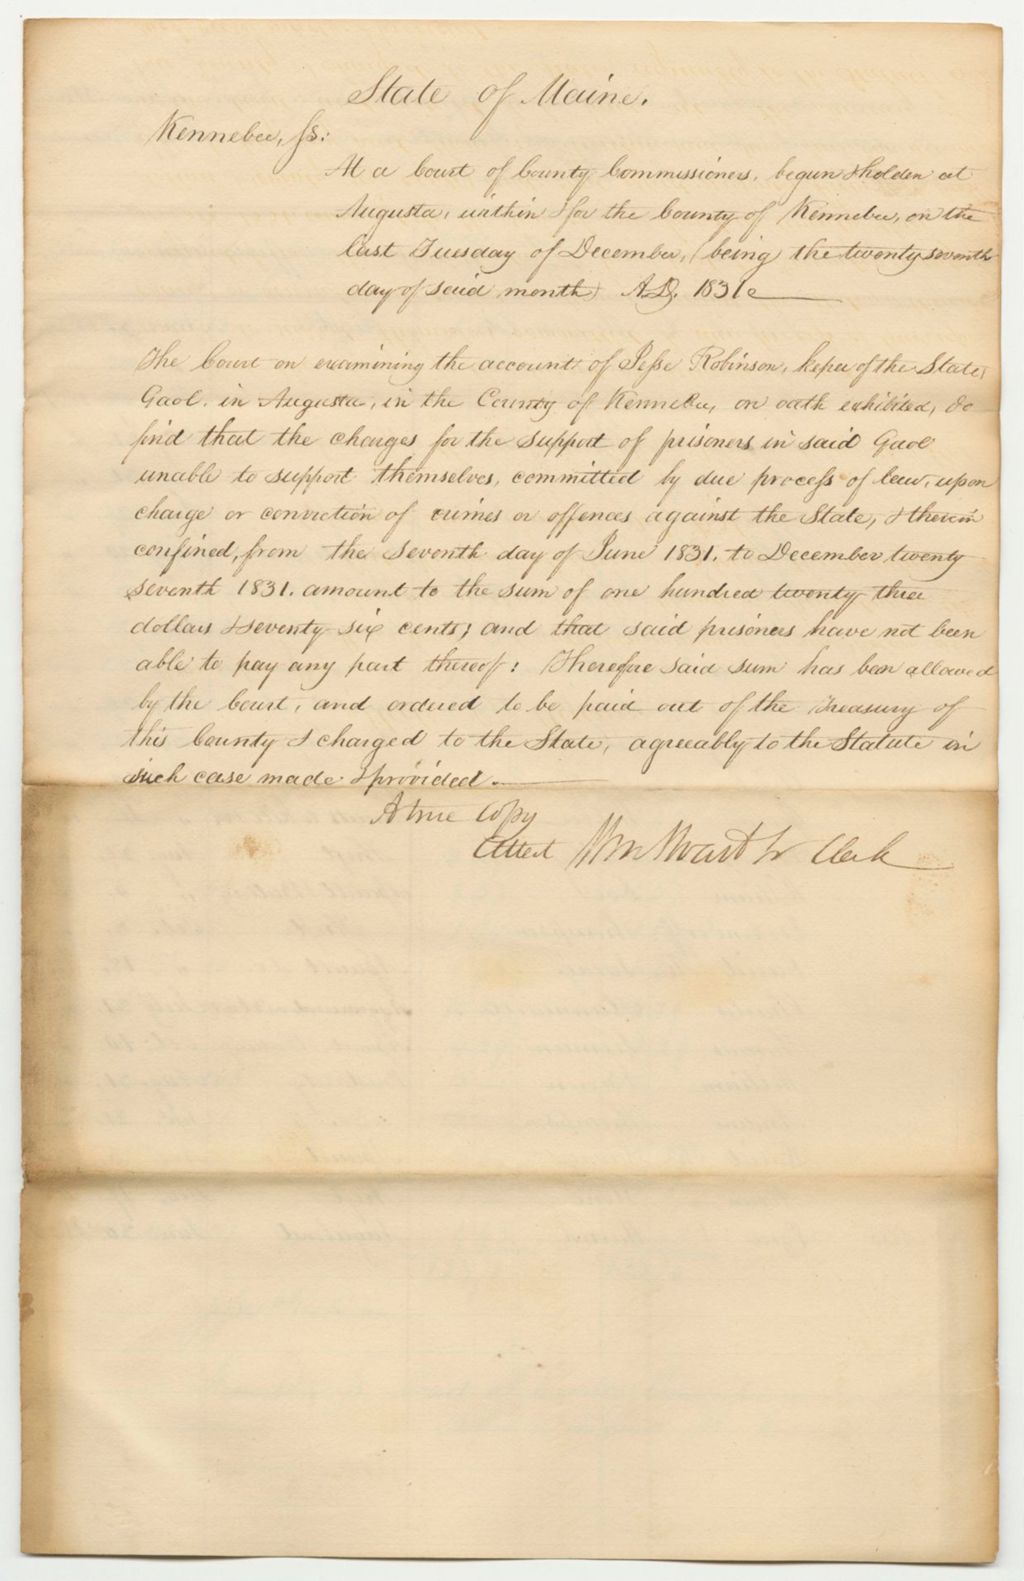 State of Maine.
Kennebec, ss:
At a Court of County Commissioners, begun & holden at
Augusta, within & for the County of Kennebec, on the
last Tuesday of December, (being the twenty seventh
day of said month) A.D. 1831
The Court on examining the account of Jesse Robinson, keper of the State
Gaol in Augusta, in the County of Kennebec, on oath exhibited, do
find that the charges for the support of prisoners in said Gaol
unable to support themselves, committed by due process of law, upon
charge or conviction of crimes or offences against the State, & therein
confined, from the seventh day of June 1831. to December twenty
seventh 1831. amount to the sum of one hundred twenty three
dollars & seventy six cents; and that said prisoners have not been
able to pay any part thereof: Therefore said sum has been allowed
by the Court, and ordered to be paid out of the Treasury of
this County & charged to the State, agreeably to the Statute in
such case made & provided.
A true Copy
Attest Wm Jr Clerk